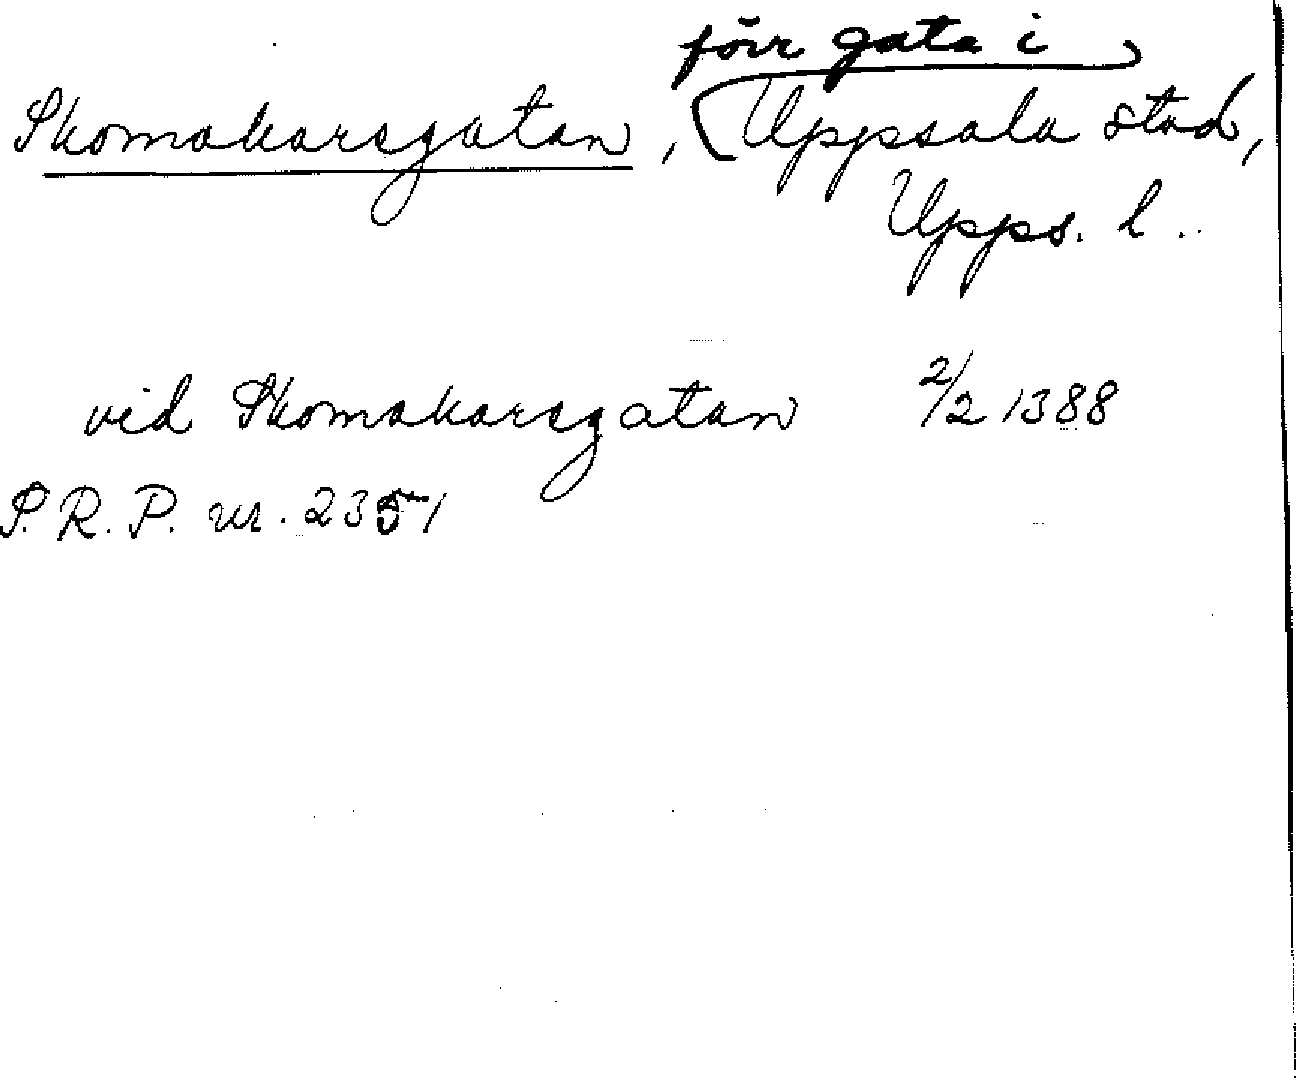 förr gata i
Skomakaregatan, Uppsala stad,
Upps. l.
vid Skomakaregatan 2/2 1388
S.R.P. nr. 2351